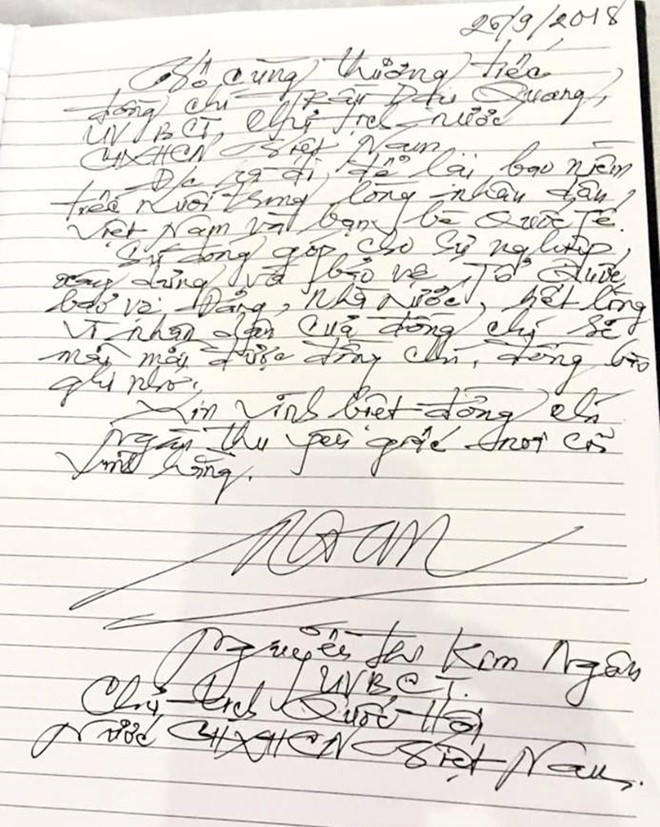 26/9/2018
Vô cùng thương tiếc
đồng chí Trần Đại Quang,
UV BCT, Chủ tịch nước
CHXHCN Việt Nam.
Đ/c ra đi, để lại bao niềm
tiếc nuối trong lòng nhân dân
Việt Nam và bạn bè Quốc tế.
Sự đóng góp cho sự nghiệp
xây dựng và bảo vệ Tổ Quốc,
bảo vệ Đảng, Nhà nước, hết lòng
vì nhân dân của đồng chí sẽ
mãi mãi được đồng chí, đồng bào
ghi nhớ.
Xin vĩnh biệt đồng chí
ngàn thu yên giấc nơi cõi
vĩnh hằng.
Ngân
Nguyễn Thị Kim Ngân
UVBCT.
Chủ tịch Quốc Hội
Nước CHXHCN Việt Nam.